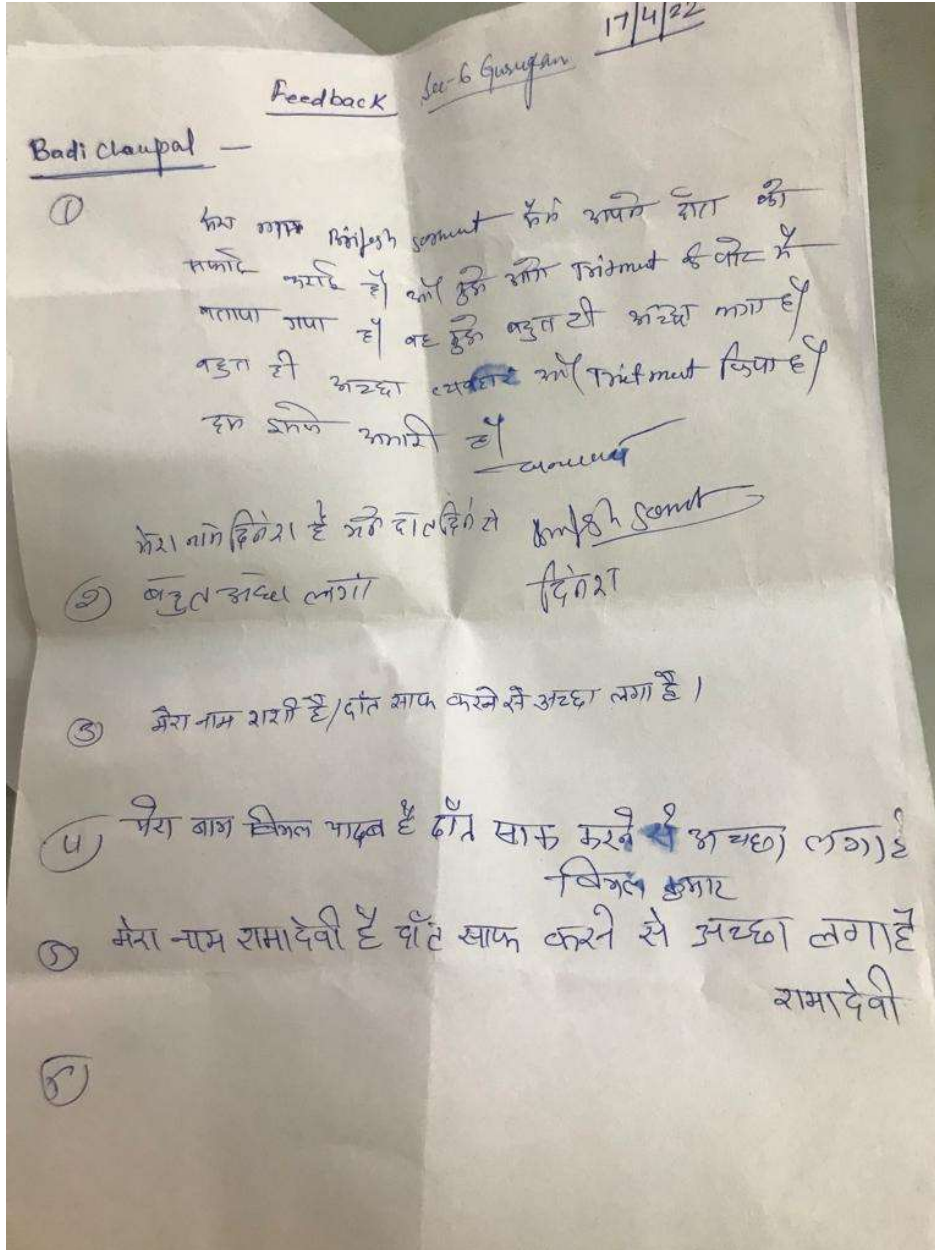 17/4/22
Feedback Sec-6 Gurugran
Badi Chaupal —
①
Brijesh मैंने अपने दाँतो की
सफाई कराई है और मुझे आगे Tritment के बारे में
बताया गया है। वह मुझे बहुत ही अच्छा लगा है।
बहुत ही अच्छा व्यवहार और Tritment किया है।
हम इनके अभारी है।
मेरा नाम दिनेश है
② बहुत अच्छा लगा दिनेश
③ मेरा नाम शशी है/दाँत साफ करने से अच्छा लगा है।
④ मेरा नाम बिमल यादव है दाँत साफ करने से अच्छा लगा है
बिमल कुमार
⑤ मेरा नाम रामादेवी है दाँत साफ करने से अच्छा लगा है
रामादेवी